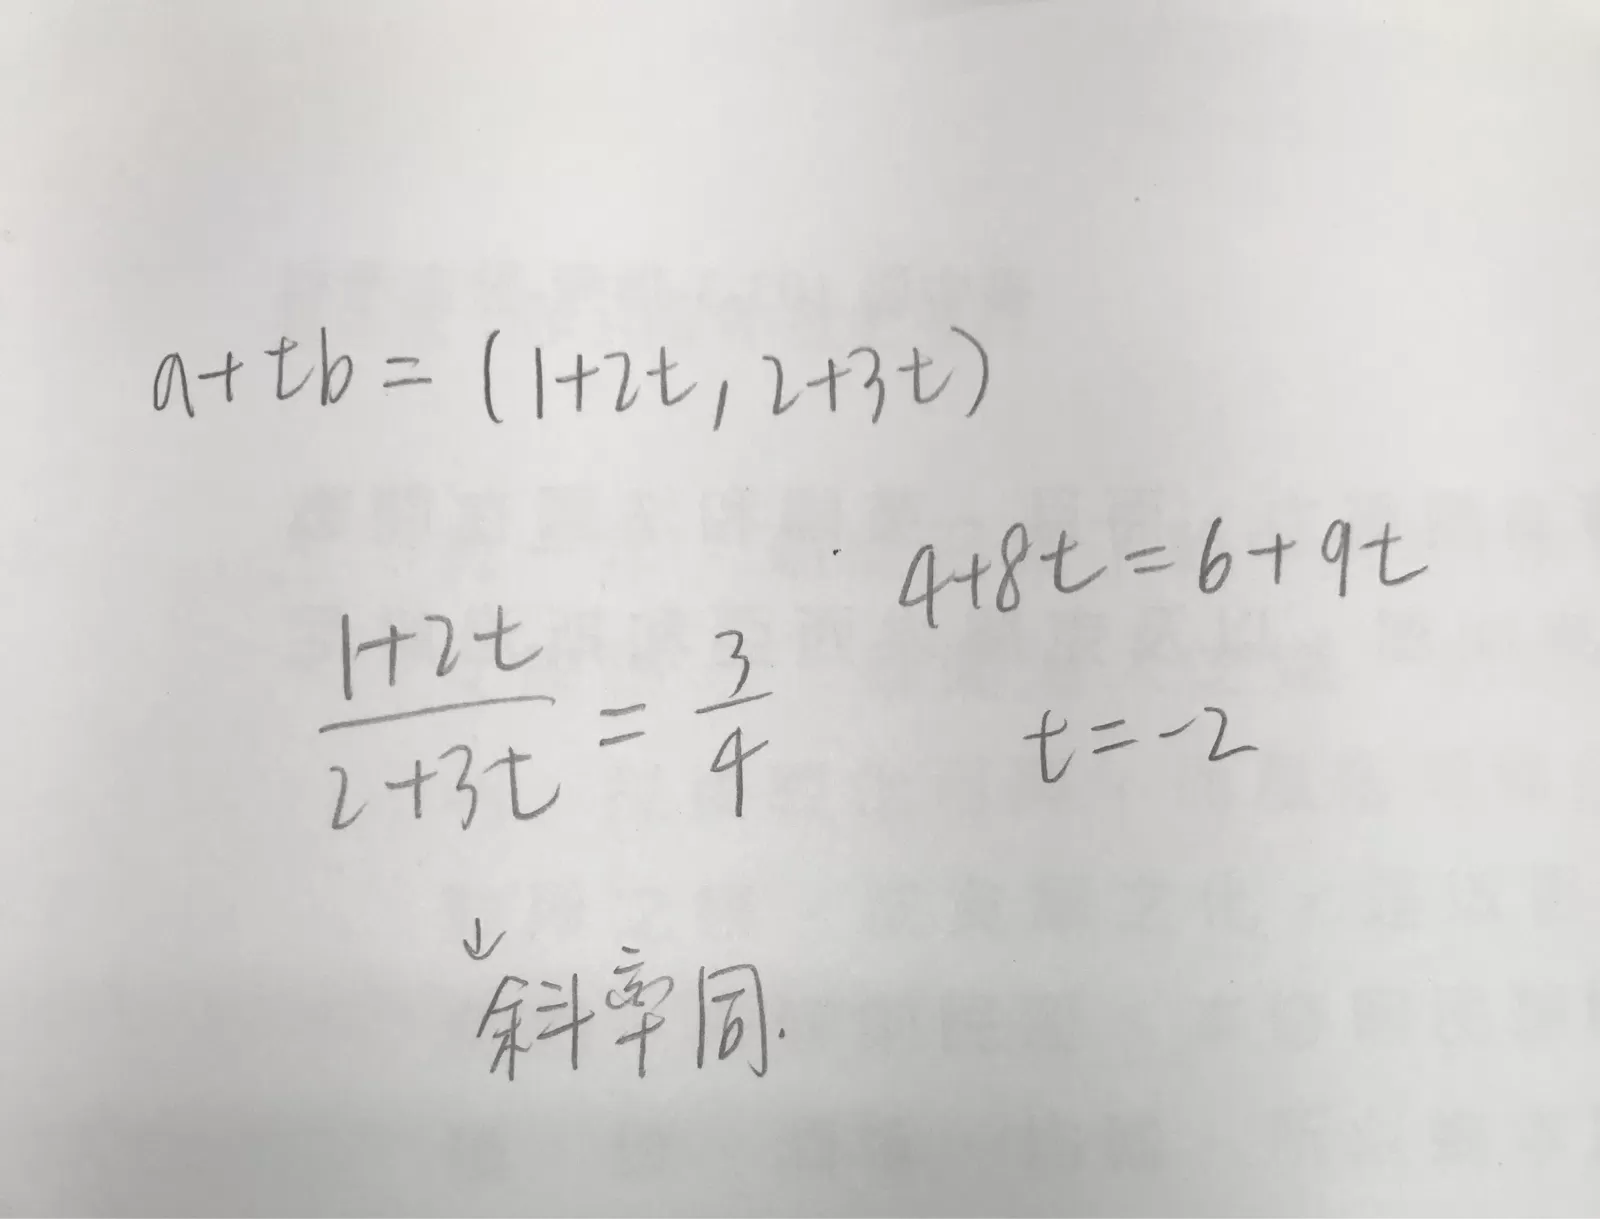 a+tb=(1+2t,2+3t)
4+8t=6+9t
1+2t/2+3t=3/4
t=-2
↓
斜率同.